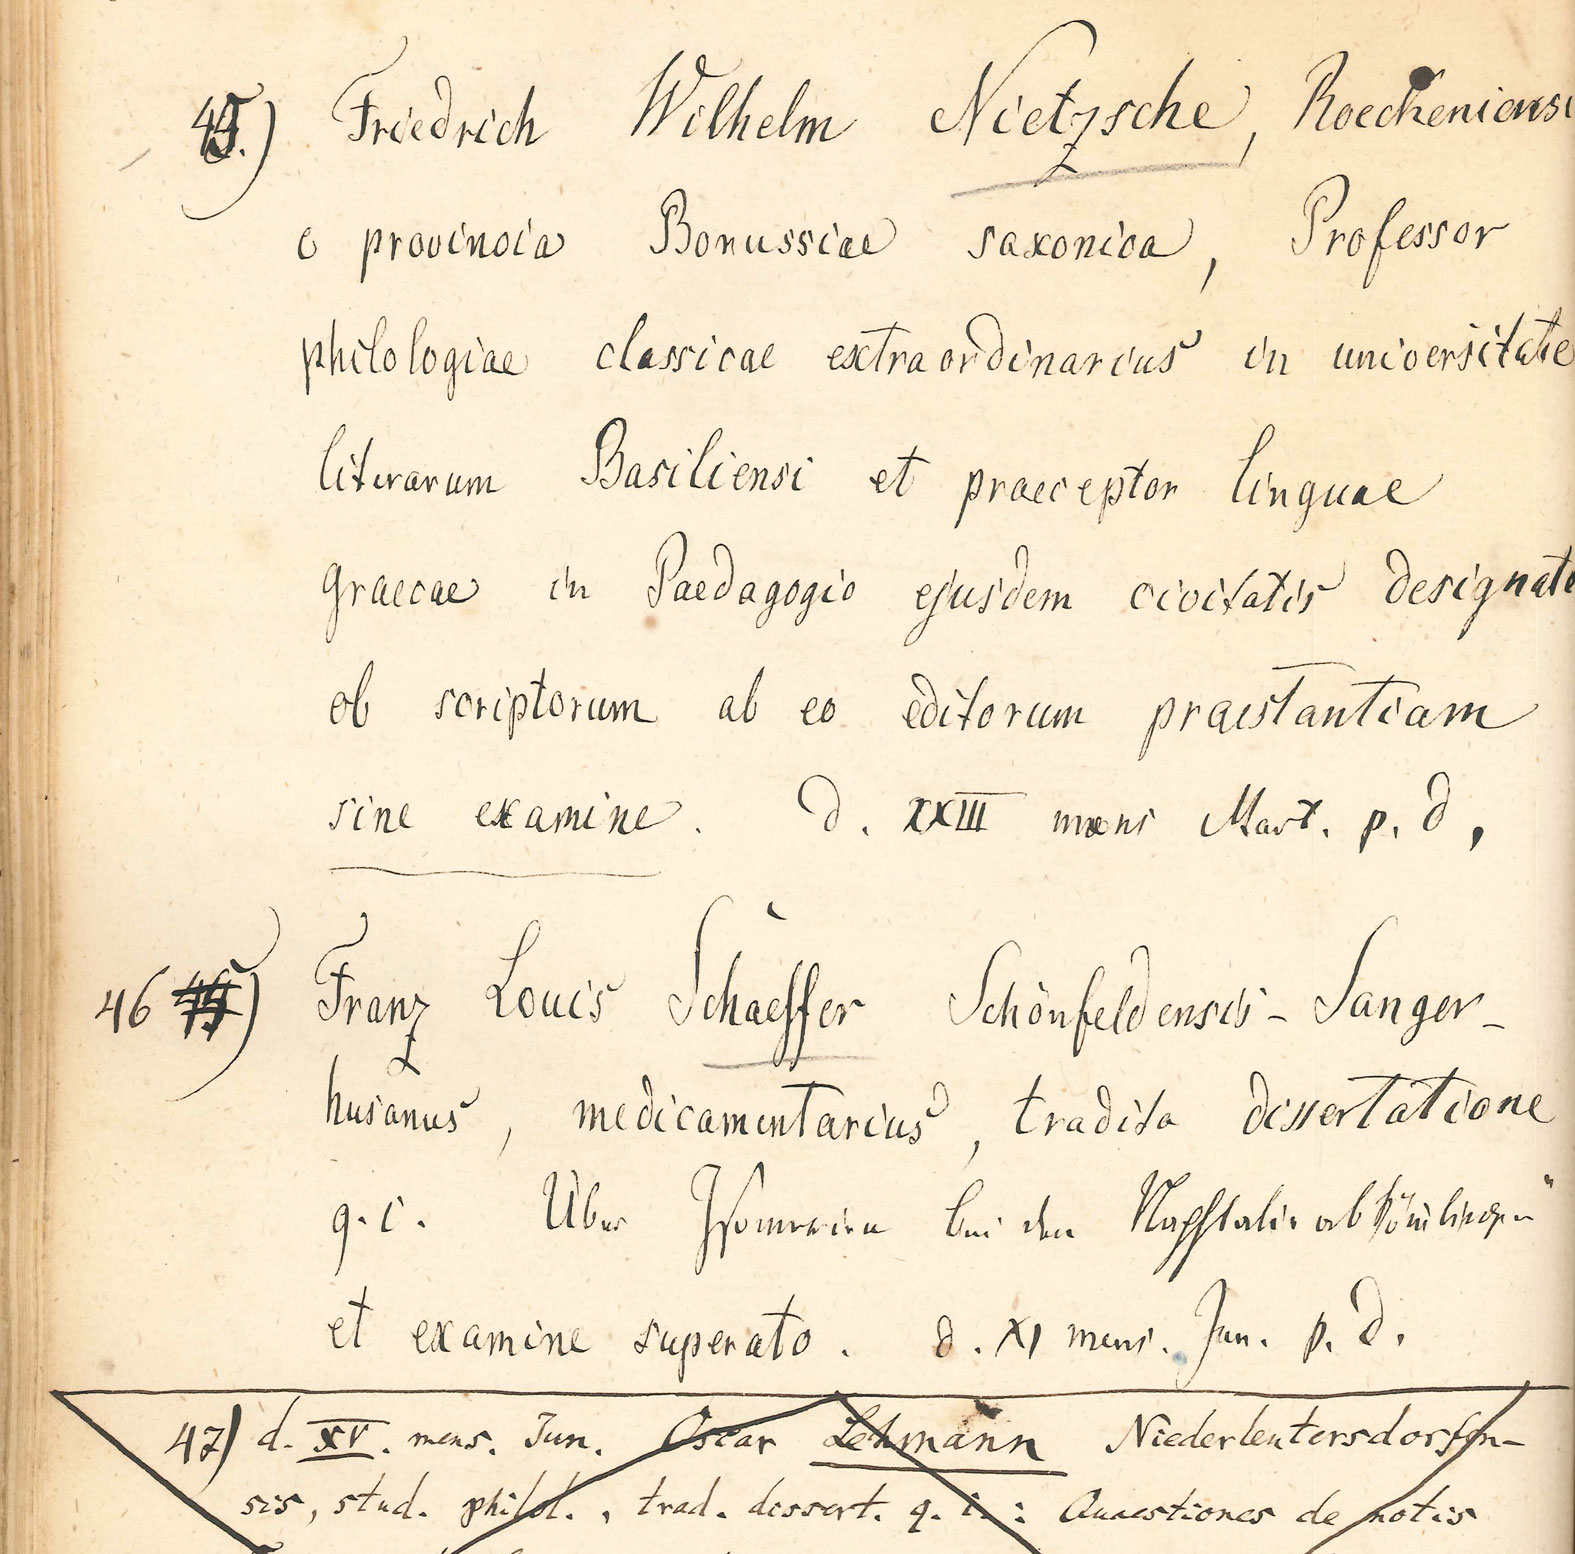 45.) Friedrich Wilhelm Nietzsche, Roeckeniensi
e provincia Borussiae saxonica, Professor
philologiae classicae extraordinarius in universitate
literarum Basiliensi et praeceptor linguae
graecae in Paedagogio ejusdem civitatis designat
ob scriptorum ab eo editorum praestantiam
sine examine. d. XXIII mens Mart. p. d.
46 45) Franz Louis Schaeffer Schönfeldensis - Sanger-
husanus, medicamentarius, tradita dissertatione
q. i. Über Isomerien bei den Naphtalinabkömlingen"
et examine superato. d. XI mens. Jun. p. d.
47) d. XV. mens. Jun. Oscar Lehmann Niederleutersdorfen-
sis, stud. philol., trad. dissert. q. i.: Quaestiones de notis